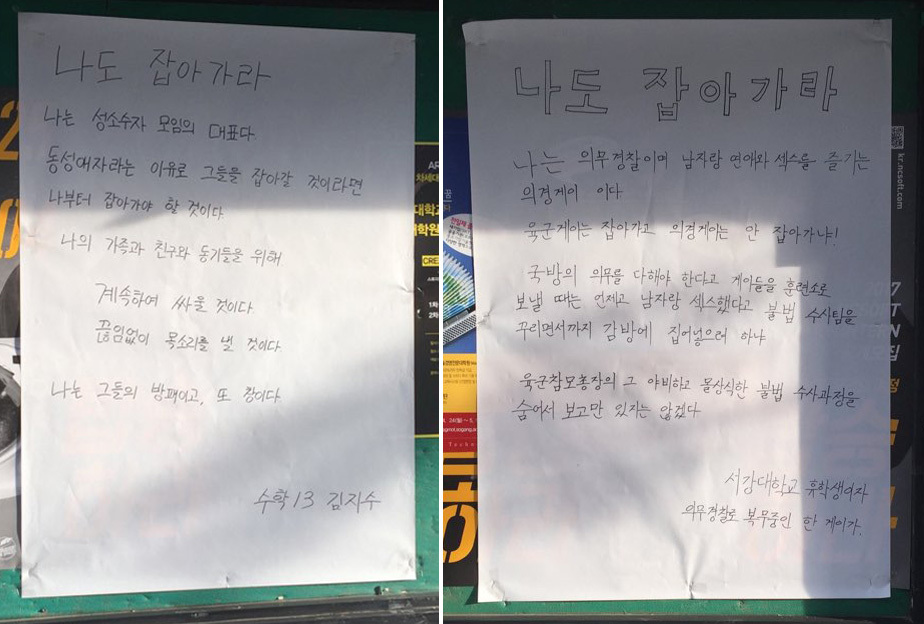 나도 잡아가라
나는 성소수자 모임의 대표다
동성애자라는 이유로 그들을 잡아갈 것이라면
나부터 잡아가야 할 것이다.
나의 가족과 친구와 동기들을 위해
계속하여 싸울 것이다
끊임없이 목소리를 낼 것이다.
나는 그들의 방패이고, 또 창이다.
수학13 김지수
나도 잡아가라
나는 의무경찰이며 남자랑 연애와 섹스를 즐기는
의경게이 이다
육군게이는 잡아가고 의경게이는 안 잡아가냐!
국방의 의무를 다해야 한다고 게이들을 훈련소로
보낼 때는 언제고 남자랑 섹스했다고 불법 수사팀을
꾸리면서까지 감방에 집어넣으려 하냐
육군참모총장의 그 야비하고 몰상식한 불법 수사과정을
숨어서 보고만 있지는 않겠다
서강대학교 휴학생이자
의무경찰로 복무중인 한 게이가.
kr.ncsoft.com